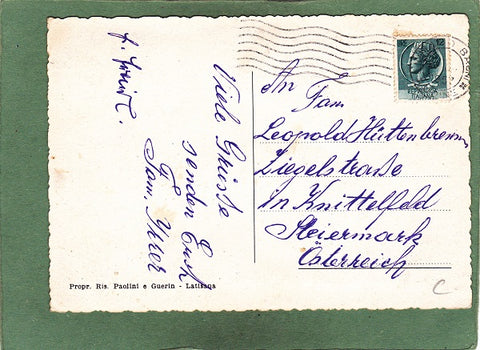 Viele Grüsse
senden Euch
Fam.
An
Fam.
Leopold Hüttenbrenner
Ziegelstraße
in Knittelfeld
Steiermark
Österreich
Propr. Ris. Paolini e Guerin - Latisana
C